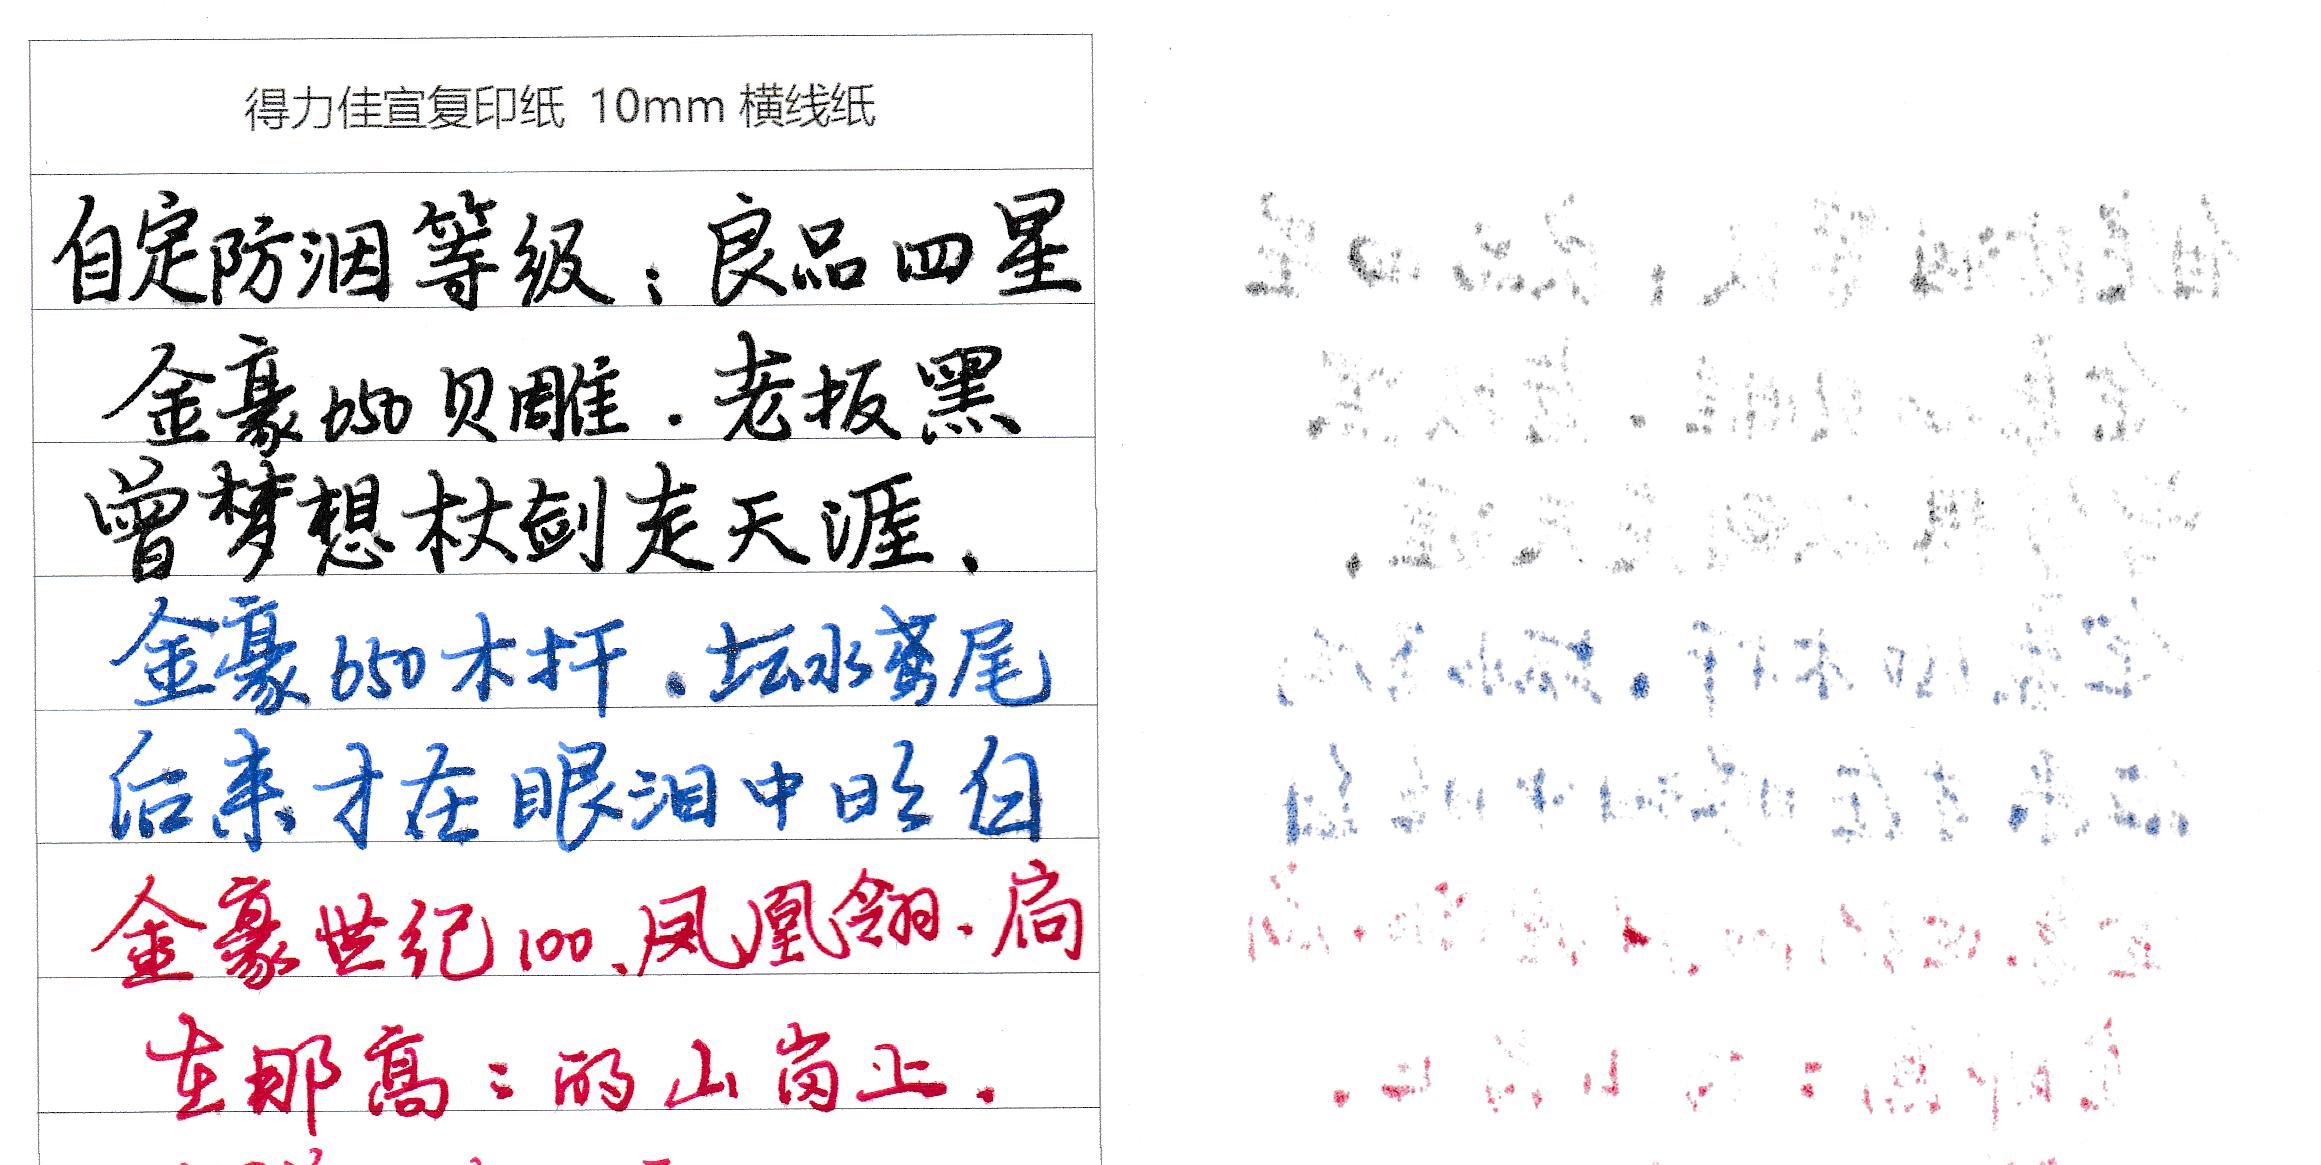 得力佳宣复印纸 10mm 横线纸
自定防洇等级：良品四星
金豪650贝雕．老板黑
曾梦想杖剑走天涯．
金豪650木杆．坛水鸢尾
后来才在眼泪中明白
金豪世纪100、凤凰翎．扃
在那高：的山岗上．